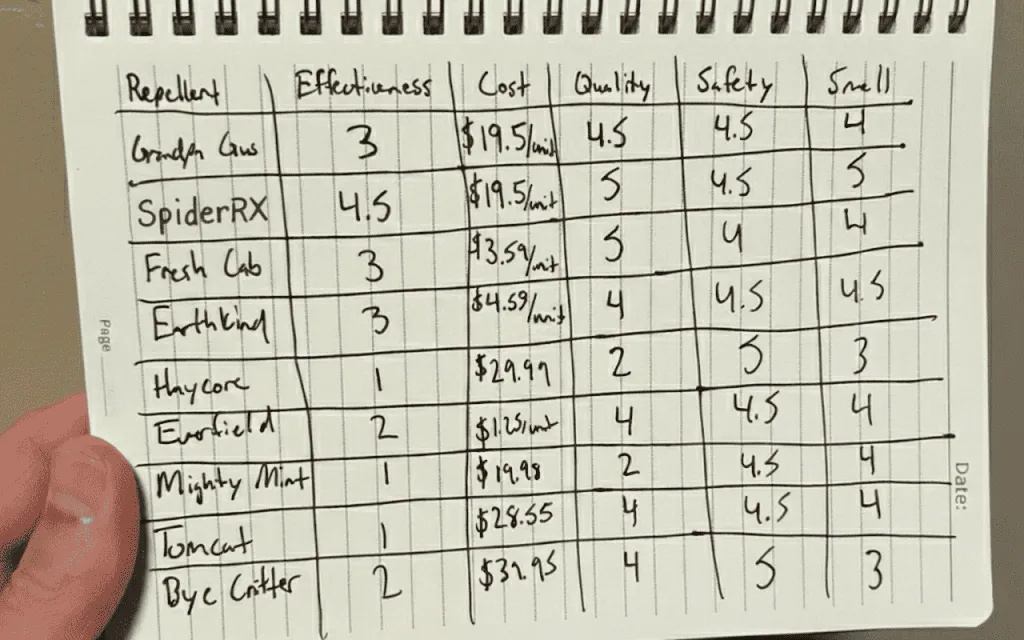 Repellent Effectiveness Cost Quality Safety Smell
Grandpa Gus 3 $19.5/unit 4.5 4.5 4
SpiderRX 4.5 $19.5/unit 5 4.5 5
Fresh Cab 3 $3.59/unit 5 4 4
Earthkind 3 $4.59/unit 4 4.5 4.5
Haycore 1 $29.99 2 5 3
Everfield 2 $1.25/unit 4 4.5 4
Mighty Mint 1 $19.98 2 4.5 4
Tomcat 1 $28.55 4 4.5 4
Bye Critter 2 4 5 3
Page
Date: